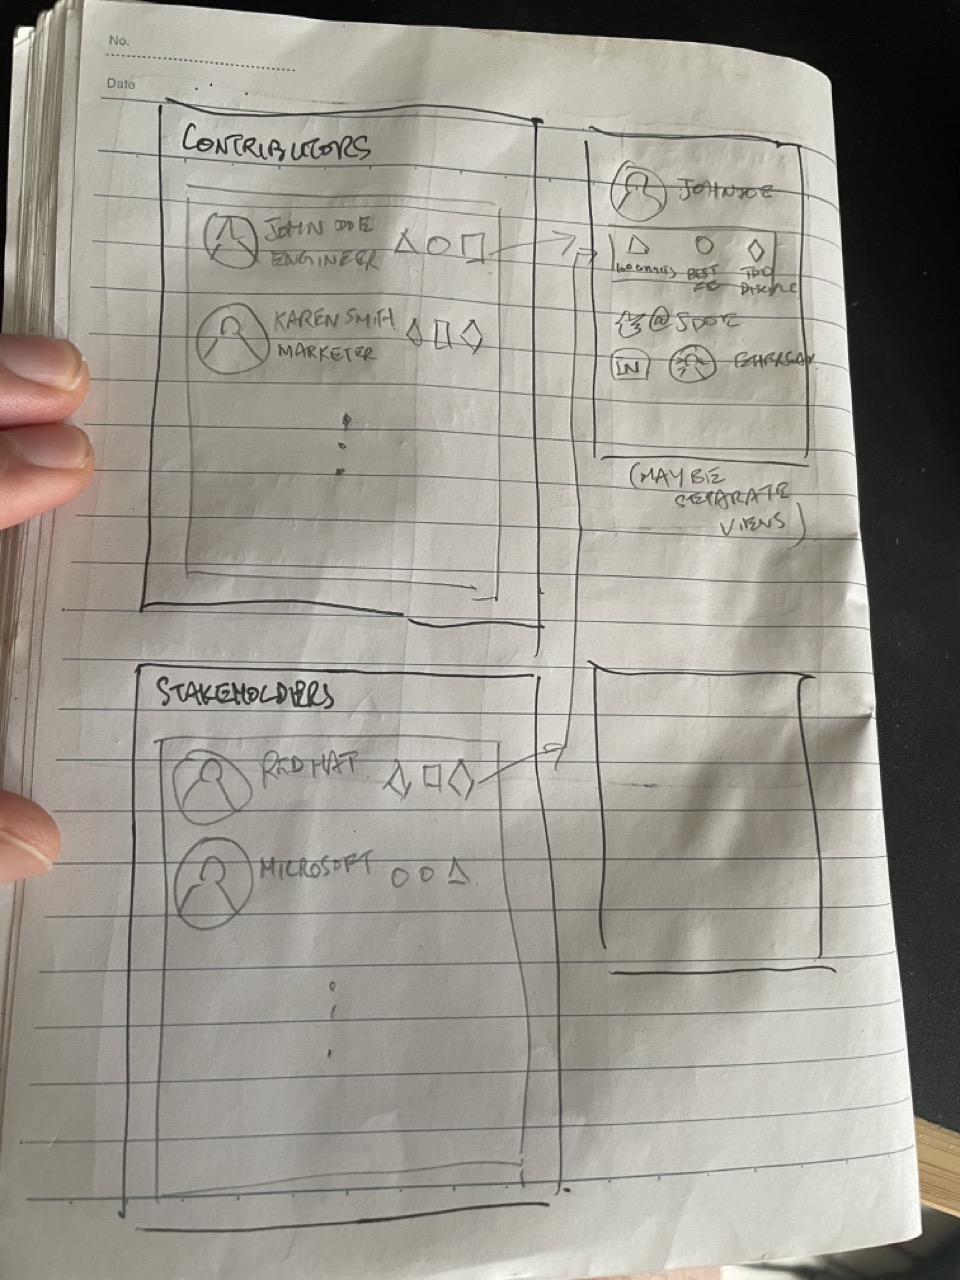 No.
Date
CONTRIBUTORS
JOHN DOE
ENGINEER
KAREN SMITH
MARKETER
JOHN DOE
BEST
@JDOE
IN
(MAYBE
SEPARATE
VIEWS)
STAKEHOLDERS
RED HAT
MICROSOFT